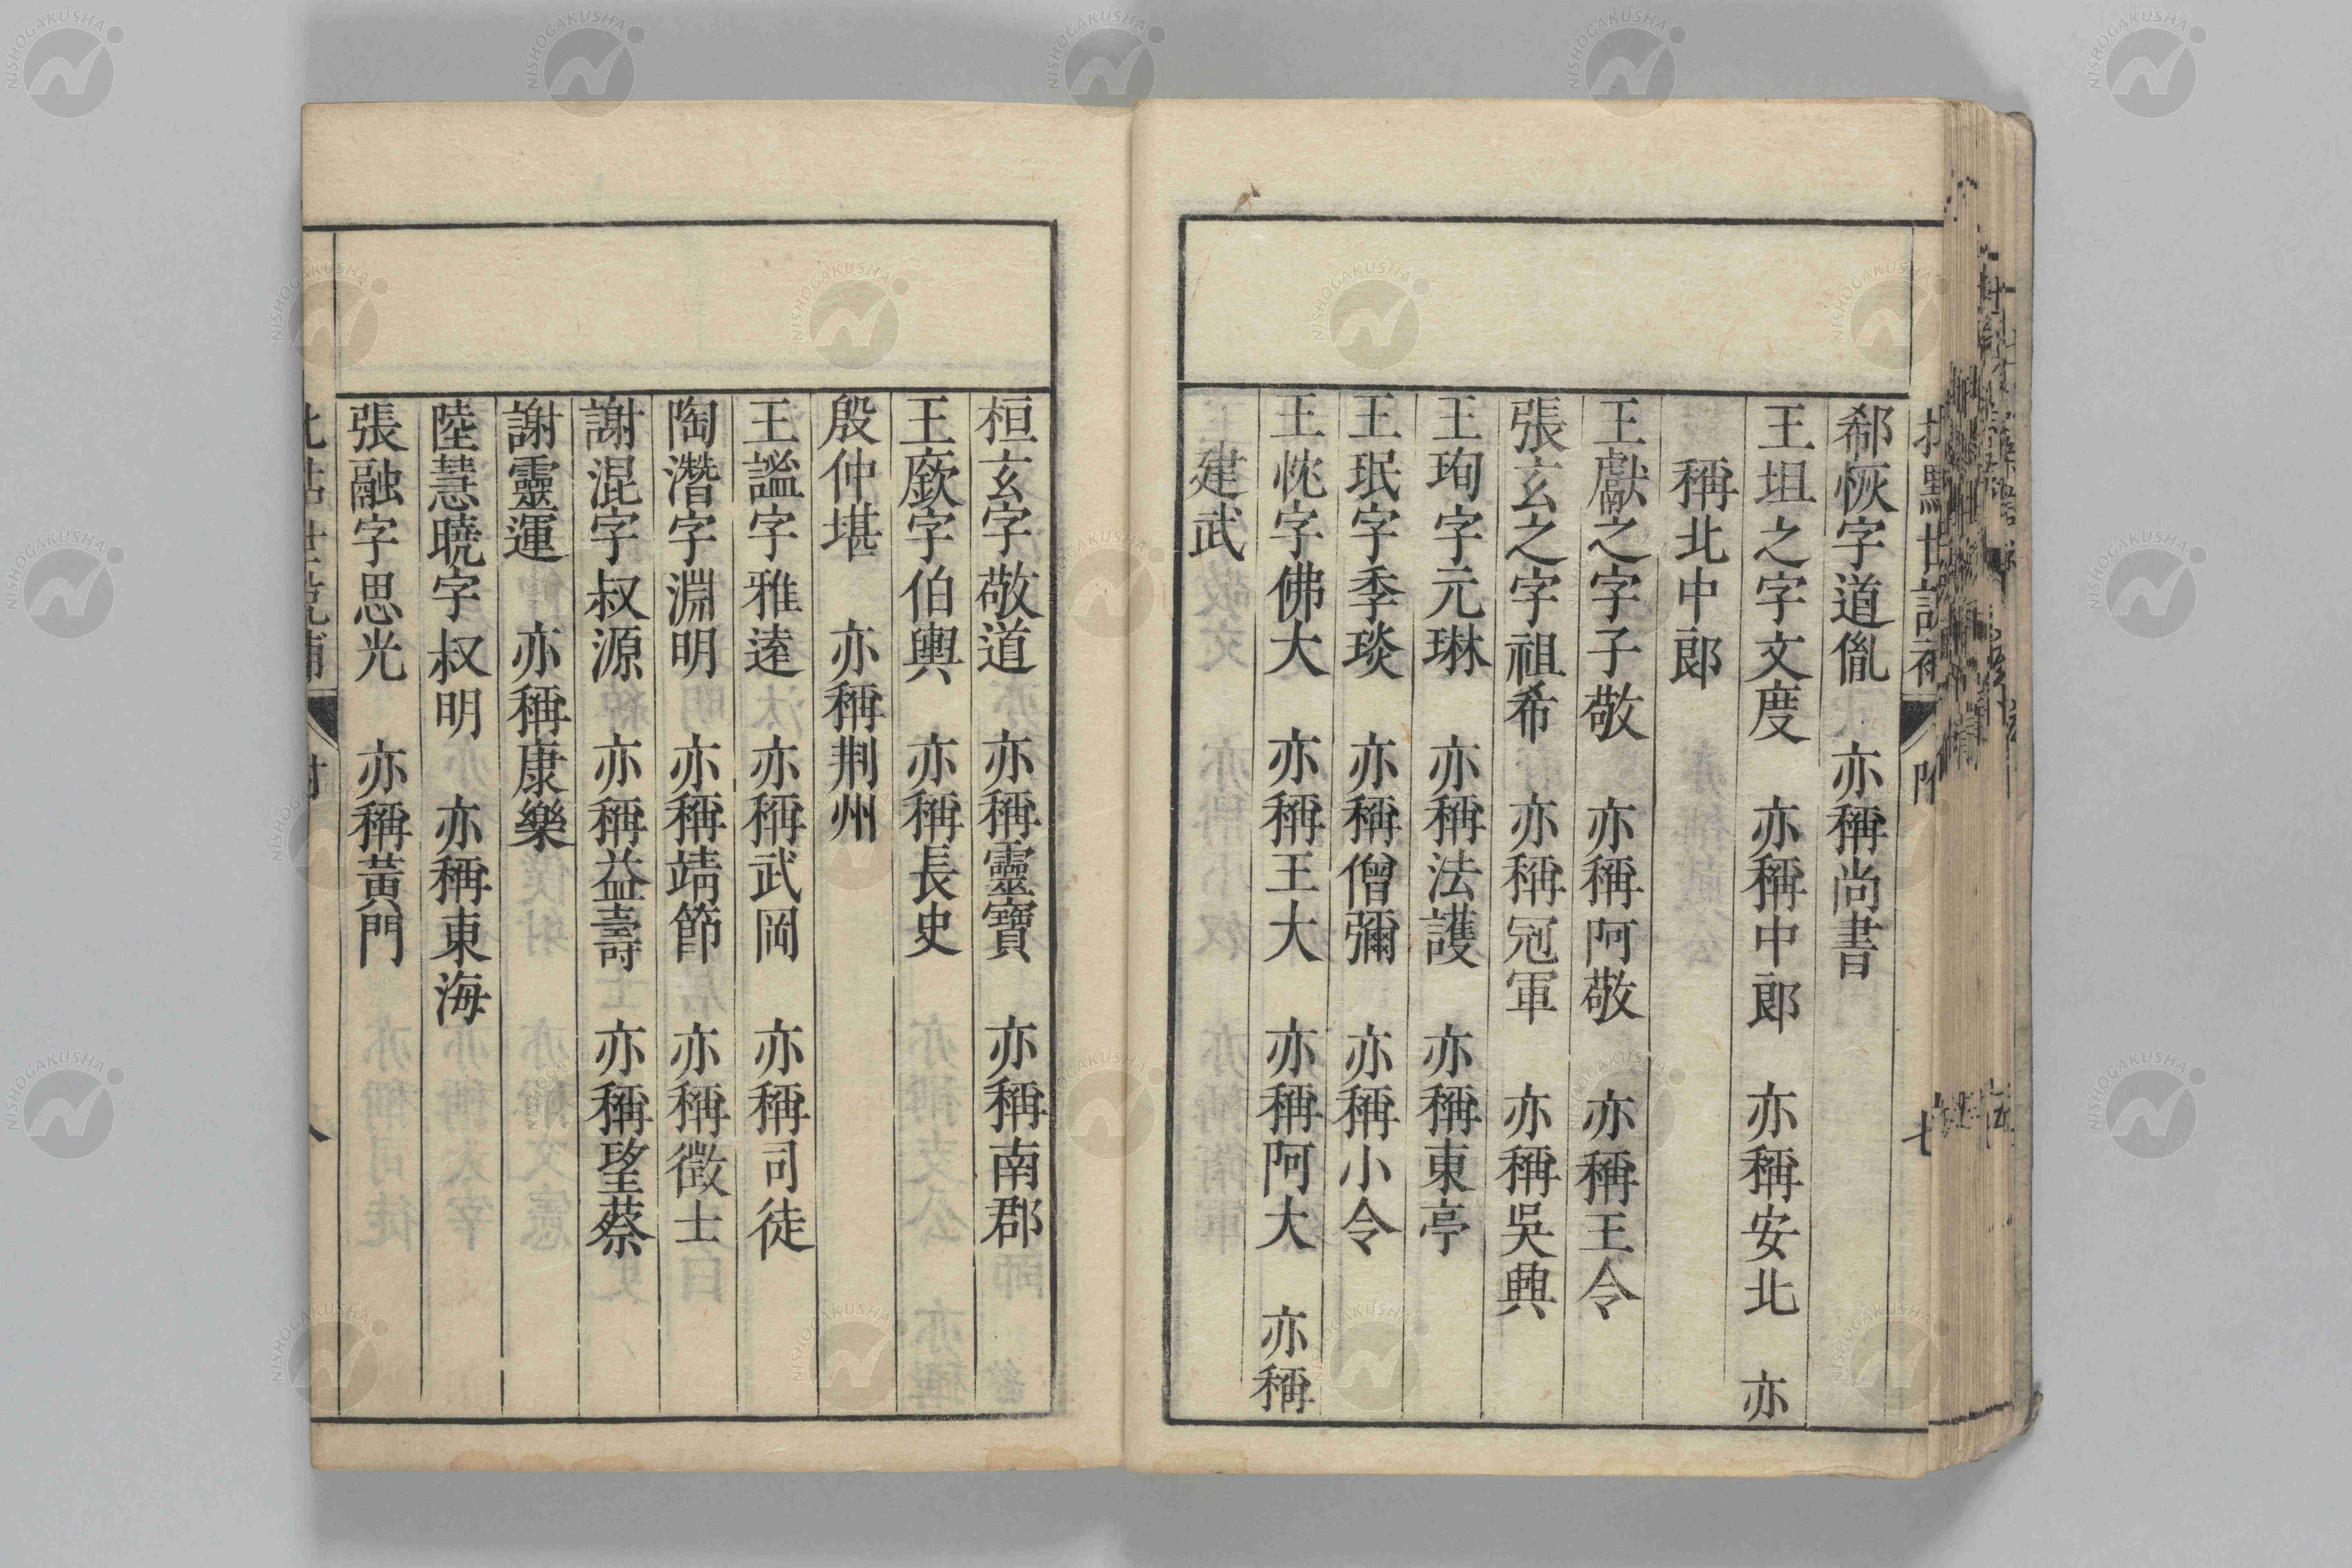 郗恢字道胤　亦稱尚書
王坦之字文度　亦稱中郎　亦稱安北　亦
稱北中郎
王獻之字子敬　亦稱阿敬　亦稱王令
張玄之字祖希　亦稱冠軍　亦稱吳興
王珣字元琳　亦稱法護　亦稱東亭
王珉字季琰　亦稱僧彌　亦稱小令
王忱字佛大　亦稱王大　亦稱阿大　亦稱
建武
桓玄字敬道　亦稱靈寶　亦稱南郡
王廞字伯輿　亦稱長史
殷仲堪　亦稱荆州
王謐字雅逺　亦稱武岡　亦稱司徒
陶潛字淵明　亦稱靖節　亦稱徵士
謝混字叔源　亦稱益壽　亦稱望蔡
謝靈運　亦稱康樂
陸慧曉字叔明　亦稱東海
張融字思光　亦稱黃門
NISHOGAKUSHA